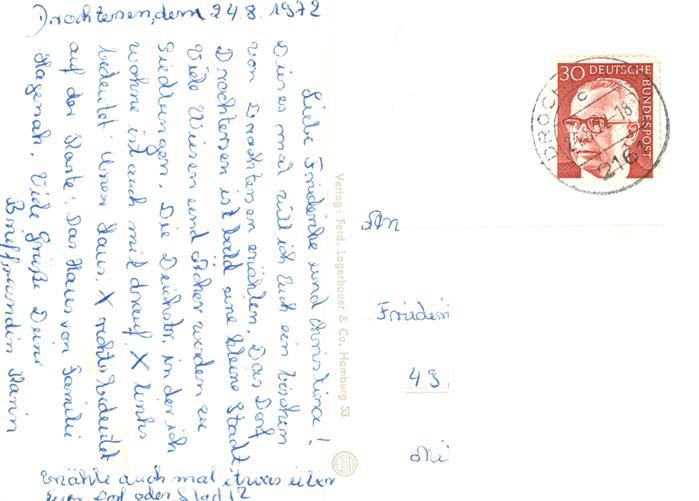 Drochtersen, dem 24.8.1972
Liebe Friederike und Christina!
Dieses mal will ich Euch ein bischen
von Drochtersen erzählen. Das Dorf
Drochtersen ist bald eine kleine Stadt.
Viele Wiesen und Äcker werden zu
Siedlungen. Die Deichstr, in der ich
wohne ist auch mit drauf. X links
bedeutet Unser Haus. X rechts bedeutet
auf der Karte: Das Haus von Familie
Hagenah. Viele Grüße Deine
Brieffreundin Karin
Erzähle auch mal etwas über
Dorf oder Stadt?
Verlag: Ferd. Lagerbauer & Co. Hamburg 33
30 DEUTSCHE
BUNDESPOST
DROCH
c
2161
An
Friederi
49